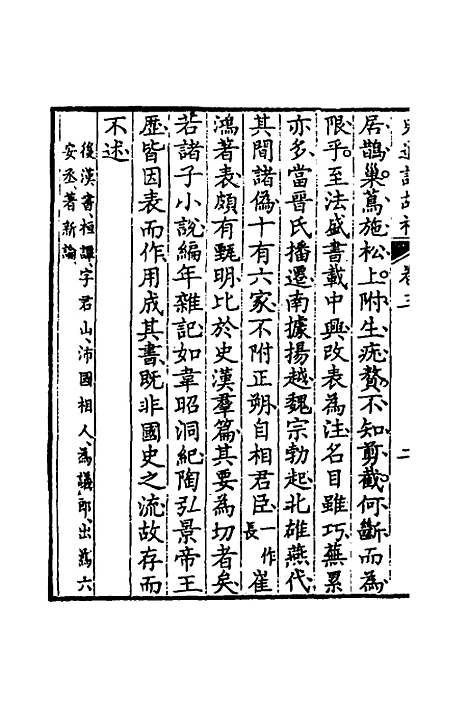 史通訓故補 卷三 二
居鵲巢蔦施松上附生疣贅不知剪截何斷而為
限乎至法盛書載中興改表為注名目雖巧蕪累
亦多當晉氏播遷南據揚越魏宗勃起北雄燕代
其間諸偽十有六家不附正朔自相君臣一作長崔
鴻著表頗有甄明比於史漢羣篇其要為切者矣
若諸子小說編年雜記如韋昭洞紀陶弘景帝王
歷皆因表而作用成其書既非國史之流故存而
不述
後漢書桓譚字君山沛國相人為議郎出為六
安丞著新論